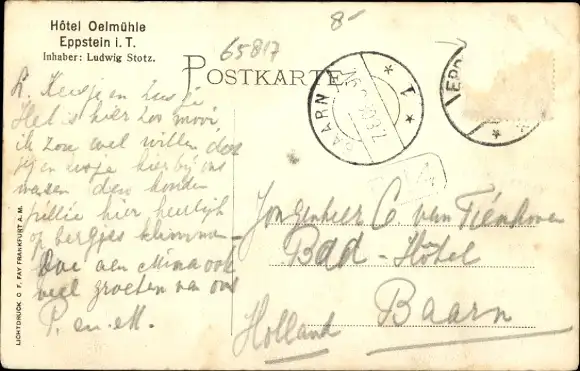 Hôtel Oelmühle
Eppstein i. T.
Inhaber: Ludwig Stotz.
8-
65817
POSTKARTE
BAARN
1
EPP
L. Keesje en Lusje
Het is hier zoo mooi
ik zou wel willen dat
jij en zusje hier bij ons
waren dan konden
jullie hier heerlijk
op bergjes klimmen
Dac aen Mina ook
veel groeten van ons
P. en M.
Jongenheer C van Tienhoven
Bad - Hôtel
Baarn
Holland
LICHTDRUCK C. F. FAY FRANKFURT A. M.